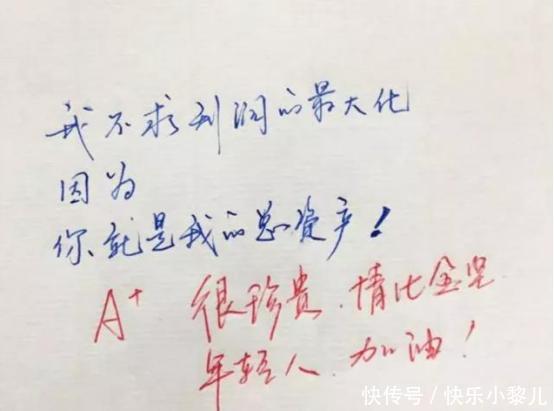 我不求利润的最大化
因为
你就是我的总资产!
A+ 很珍贵.情比金坚
年轻人.加油!
快传号/快乐小黎儿